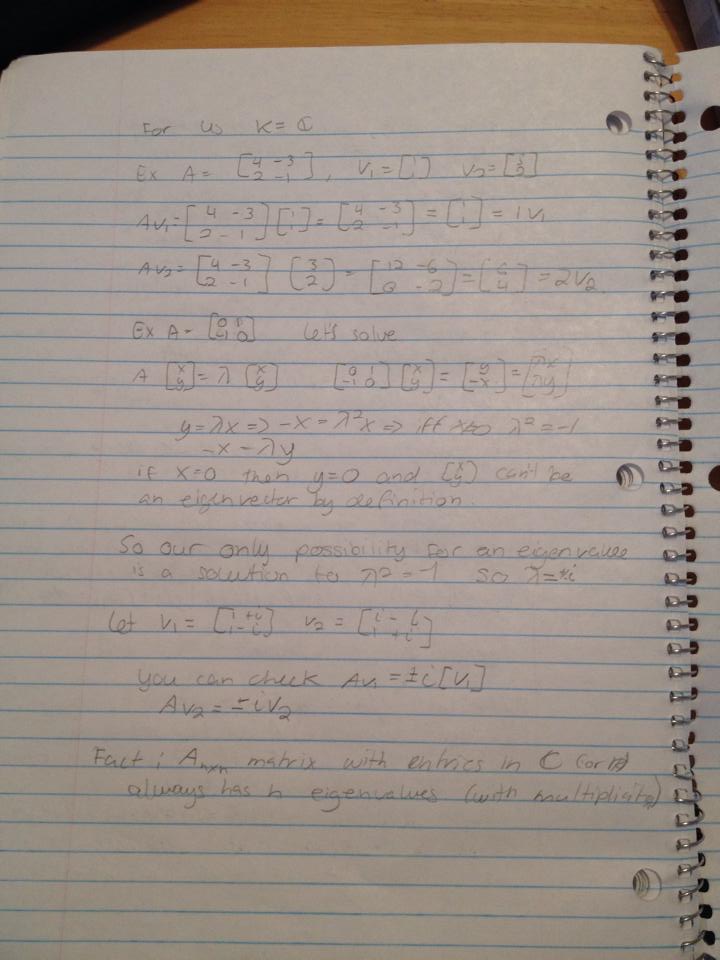 For us K = ℂ
Ex A = [4 -3; 2 -1], V₁ = [1; 1] V₂ = [3; 2]
AV₁ = [4 -3; 2 -1] [1; 1] = [4 -3; 2 -1] = [1; 1] = 1V₁
AV₂ = [4 -3; 2 -1] [3; 2] = [12 -6; 6 -2] = [6; 4] = 2V₂
Ex A = [0 1; -1 0] let's solve
A [x; y] = λ [x; y] [0 1; -1 0] [x; y] = [y; -x] = [λx; λy]
y = λx => -x = λ²x => iff λ² = -1
-x = λy
if x=0 then y=0 and [x; y] can't be
an eigenvector by definition.
So our only possibility for an eigenvalue
is a solution to λ² = -1 so λ = ±i
Let V₁ = V₂ =
you can check AV₁ = ±i [V₁]
AV₂ = ±iV₂
Fact: Aₙₓₙ matrix with entries in ℂ (or ℝ)
always has n eigenvalues (with multiplicity)